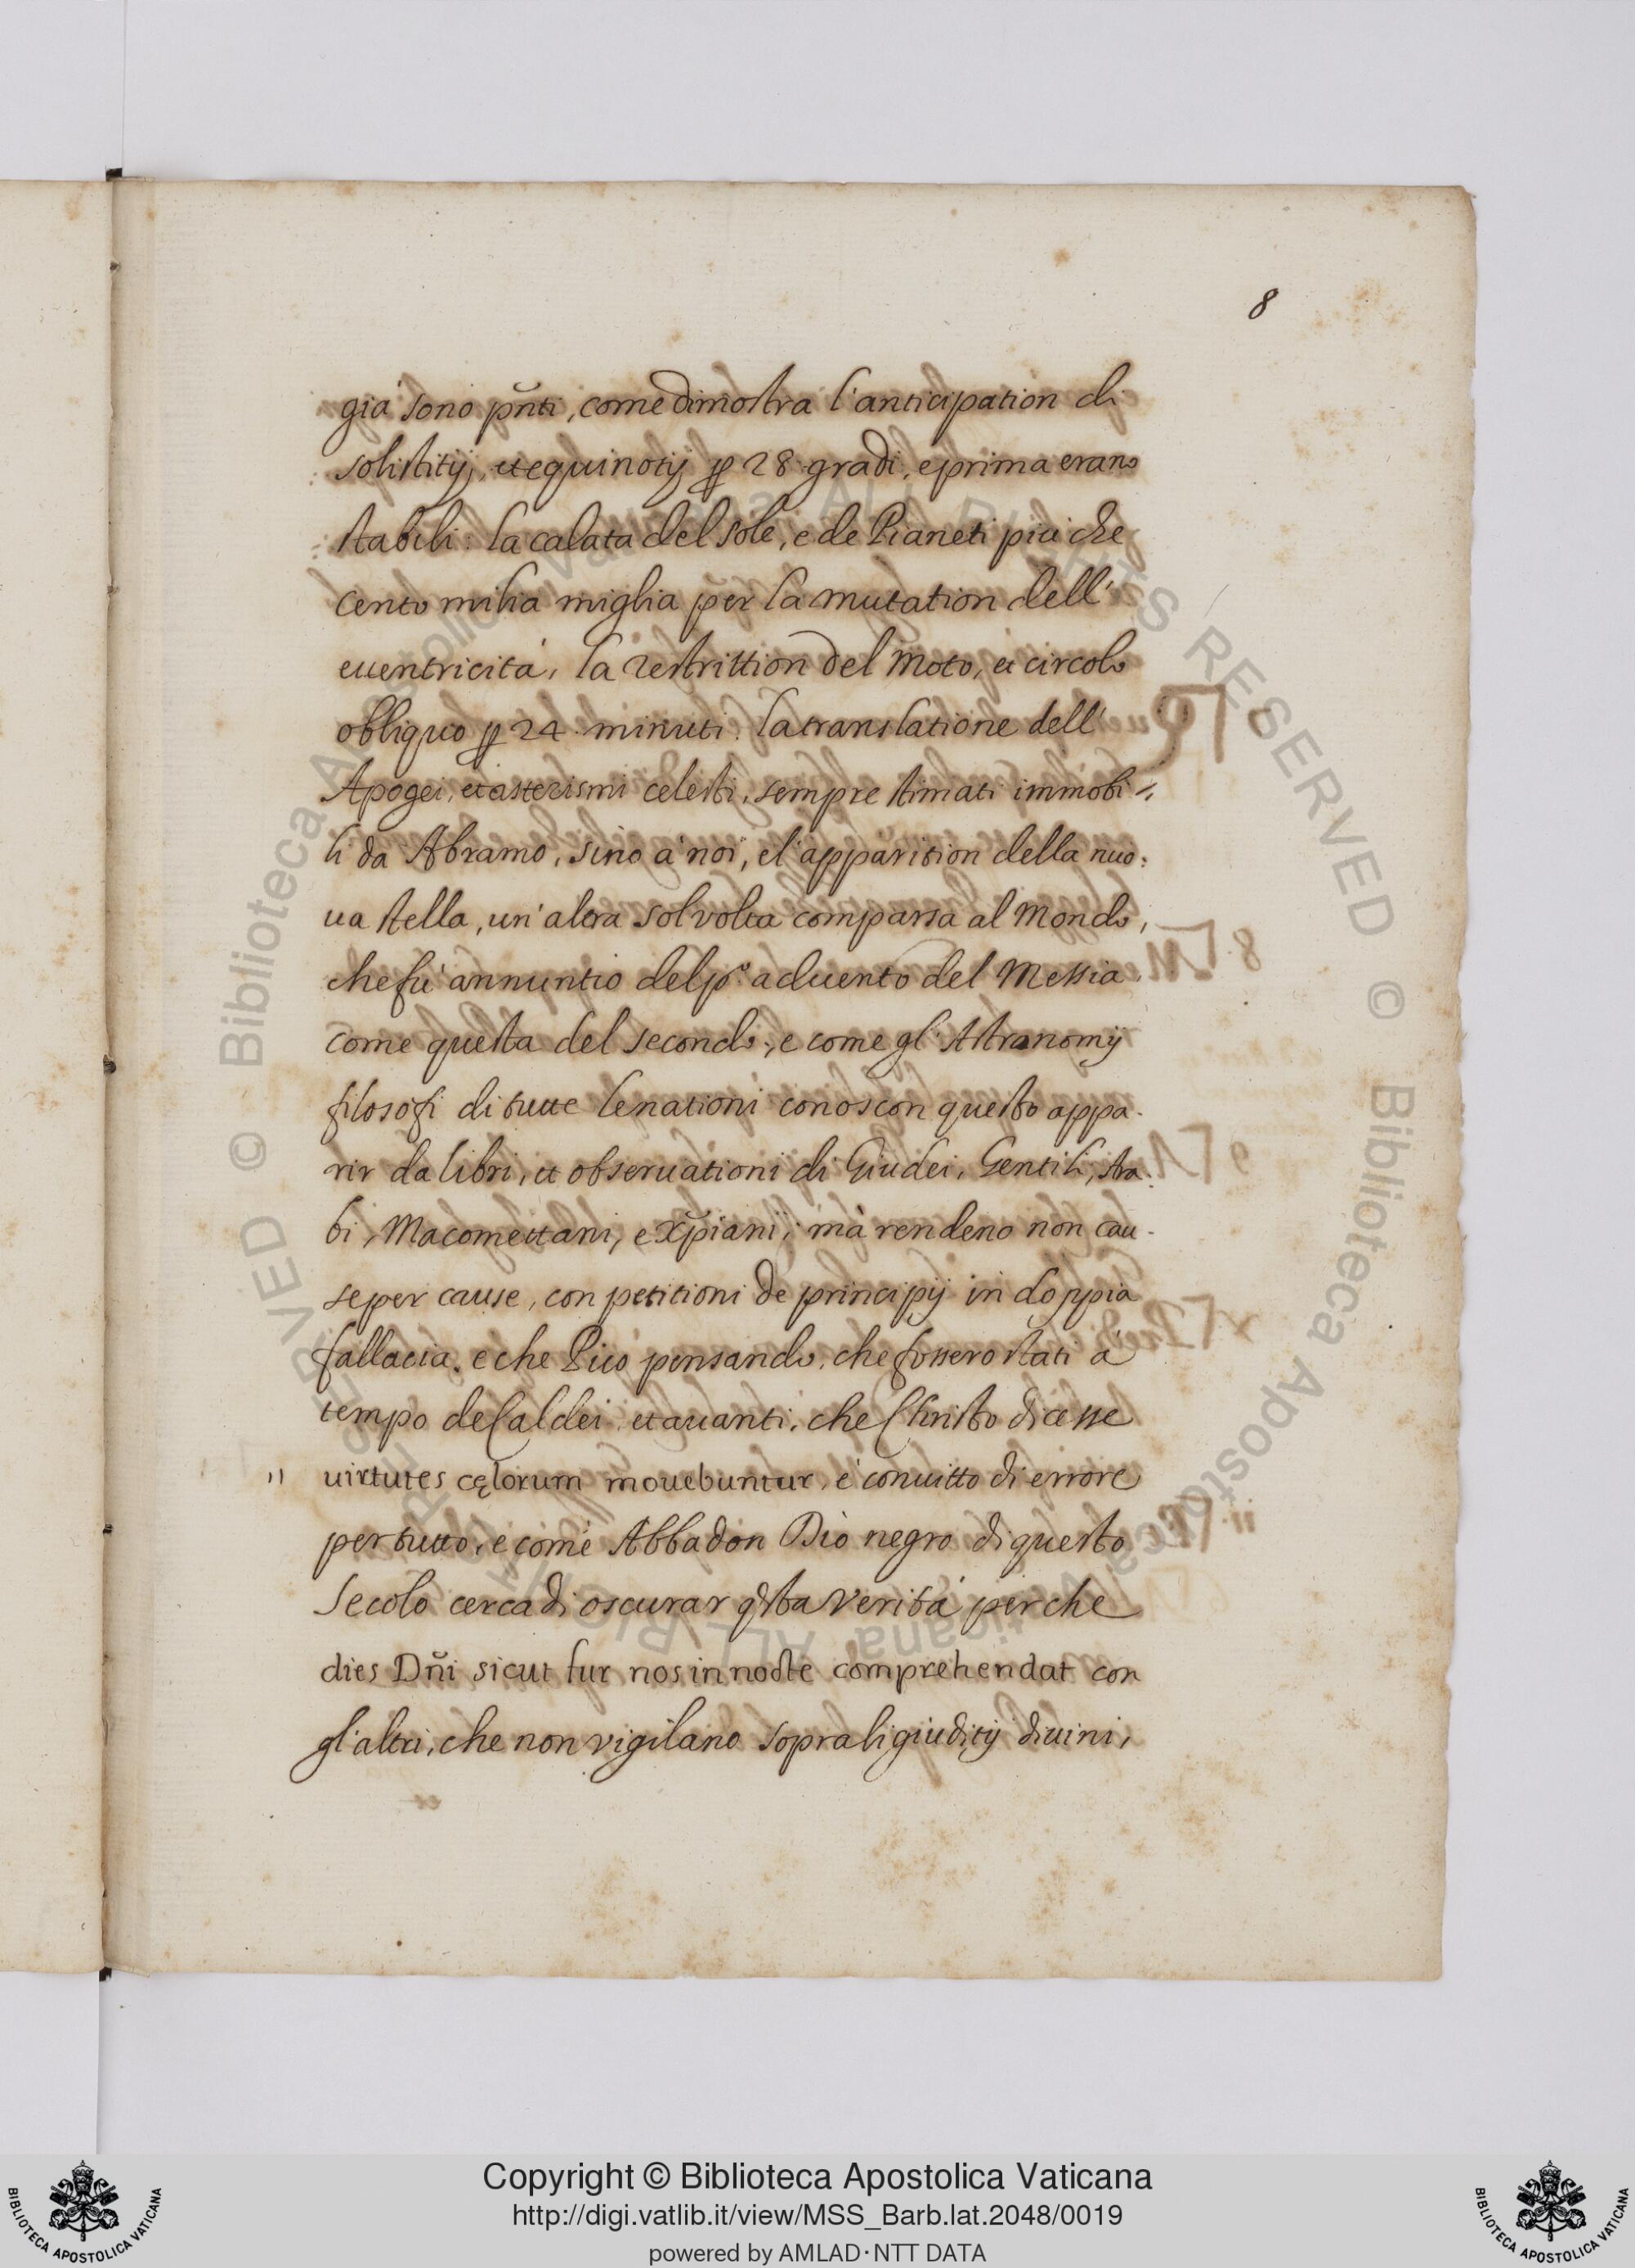 8
già sono pñti, come dimostra l'anticipation di
solistitij, et equinotij ꝑ 28 gradi, e prima erano
stabili: la calata del sole, e de Pianeti più che
cento milia miglia per la mutation dell'
eccentricità, la restrittion del moto, et circolo
obliquo ꝑ 24 minuti. la translatione dell'
Apogei, et asterismi celesti, sempre stimati immobi=
li da Abramo, sino à noi, e l'apparition della nuo:
ua stella, un'altra sol volta comparsa al Mondo,
che fù annuntio del pº aduento del Messia.
come questa del secondo, e come gl'Astranomij
filosofi di tutte le nationi conoscon questo appa-
rir da libri, et obseruationi di Giudei, Gentili, Ara-
bi, Macomettani, e xp̃iani; mà rendeno non cau-
se per cause, con petitioni de principij in doppia
fallacia. e che Pico pensando, che fossero stati à
tempo de Caldei et auanti, che Christo dicesse
" uirtutes cęlorum mouebuntur, è conuitto di errore
per tutto, e come Abbadon Dio negro di questo
secolo cerca di oscurar q̃sta verità perche
dies Dñi sicut fur nos in nocte comprehendat con
gl'altri, che non vigilano sopra li giuditij diuini,
Copyright © Biblioteca Apostolica Vaticana
http://digi.vatlib.it/view/MSS_Barb.lat.2048/0019
powered by AMLAD·NTT DATA
BIBLIOTECA APOSTOLICA VATICANA
BIBLIOTECA APOSTOLICA VATICANA